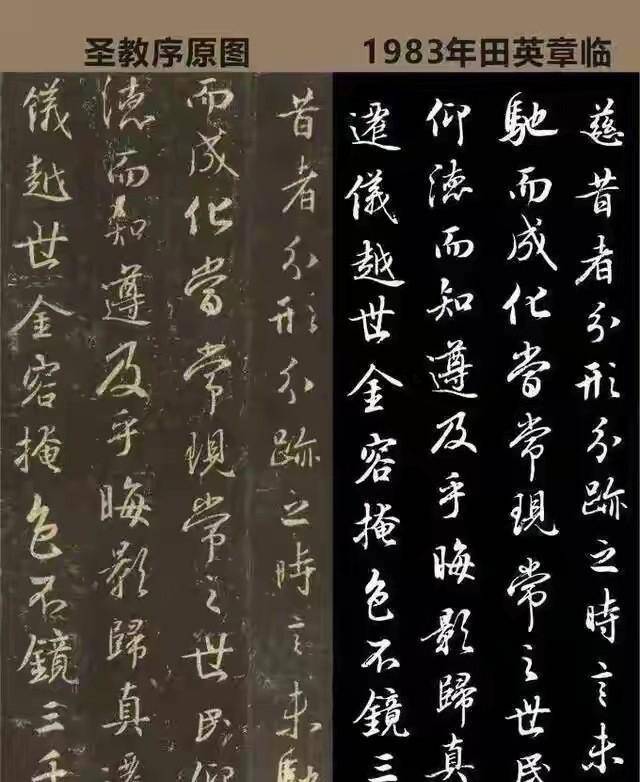 圣教序原图
昔者分形分跡之時言未馳
而成化當常現常之世民仰
德而知遵及乎晦影歸真遷
儀越世金容掩色不鏡三千
1983年田英章临
慈昔者分形分跡之時言未
馳而成化當常現常之世民
仰德而知遵及乎晦影歸真
遷儀越世金容掩色不鏡三